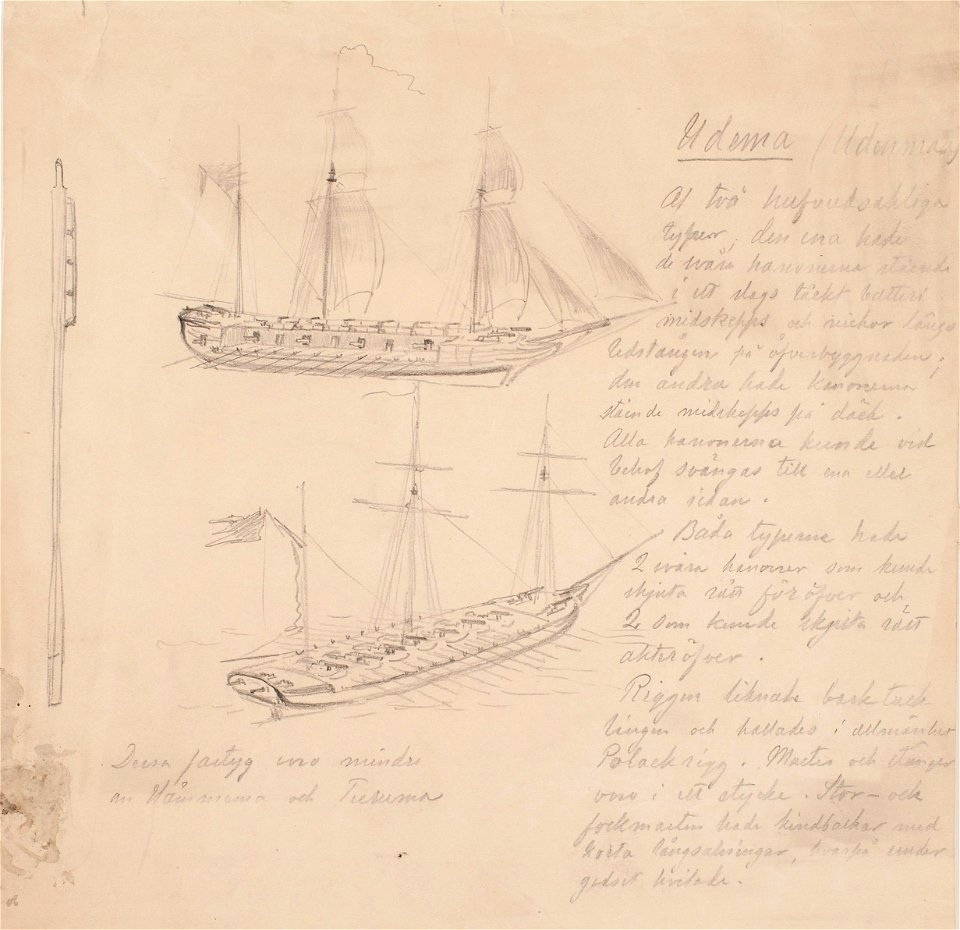 Udema (Udenmaa)
Af två hufvudsakliga
typer, den ena hade
de svåra kanonerna stående
i ett slags täckt batteri
midskepps och nickor längs
ledstången på öfverbyggnaden;
den andra hade kanonerna
stående midskepps på däck.
Alla kanonerna kunde vid
behof svängas till ena eller
andra sidan.
Båda typerne hade
2 svåra kanoner som kunde
skjuta rätt föröfver och
2 som kunde skjuta rätt
akteröfver.
Riggen liknade bark tack-
lingen och kallades i allmänhet
Polackrigg. Master och stänger
voro i ett stycke. Stor- och
fockmasten hade kindbackar med
korta långsalningar, hvarpå under
godset hvilade.
Dessa fartyg voro mindre
än Hämmema och Turuma